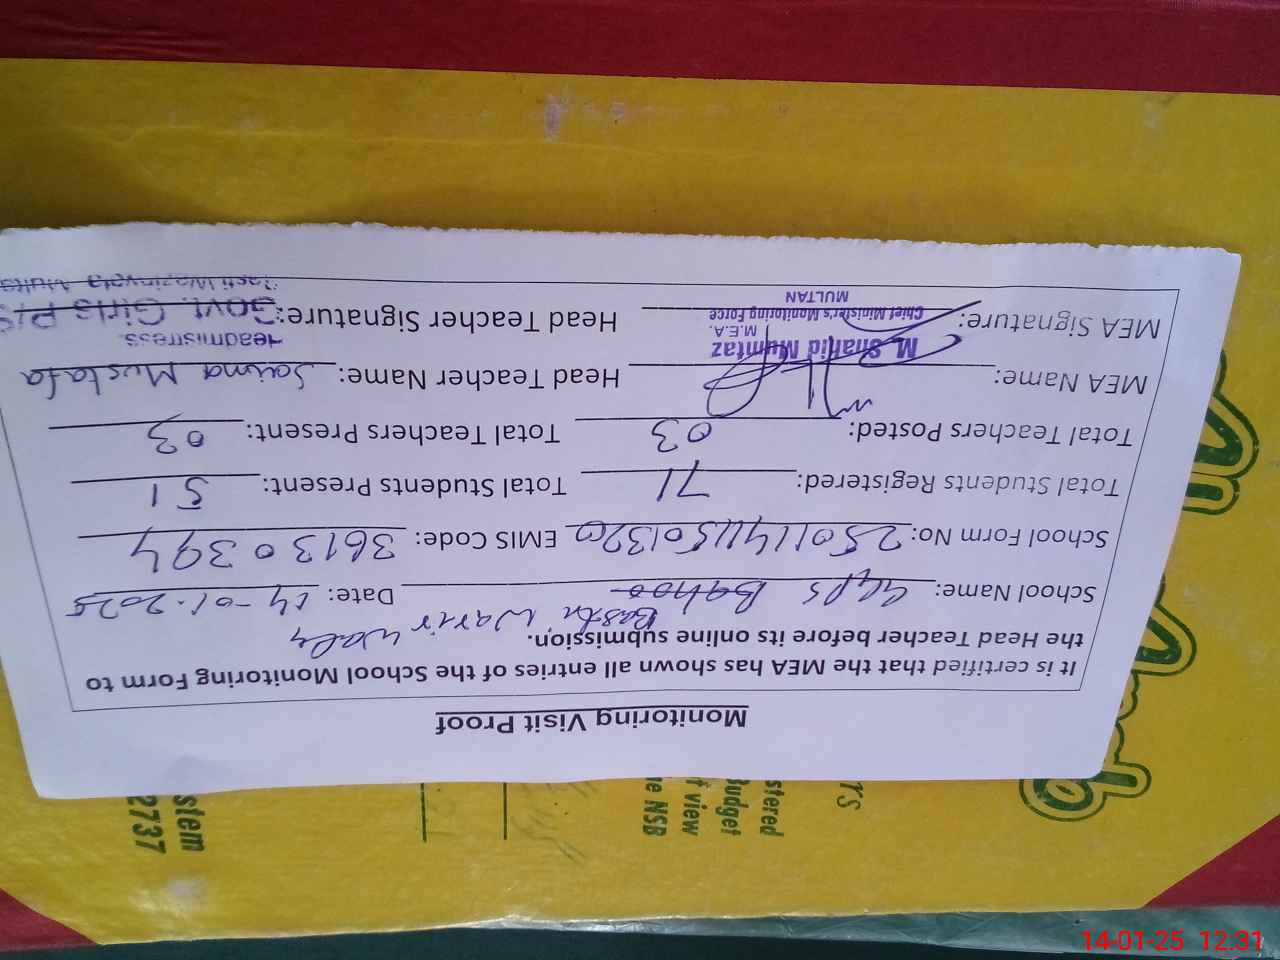 Monitoring Visit Proof
It is certified that the MEA has shown all entries of the School Monitoring Form to
the Head Teacher before its online submission.
Basti Wazir Waly
School Name: GGPS Bahoo Date: 14-01-2025
School Form No: EMIS Code: 36130394
Total Students Registered: 71 Total Students Present: 51
Total Teachers Posted: 03 Total Teachers Present: 03
MEA Name: Head Teacher Name: Saima Mustafa
M. Shahid Mumtaz
M.E.A.
Headmistress
MEA Signature: Chief Minister's Monitoring Force Head Teacher Signature: Govt. Girls P/S
MULTAN
stem
2737
stered
Budget
t view
e NSB
14-01-25 12:31